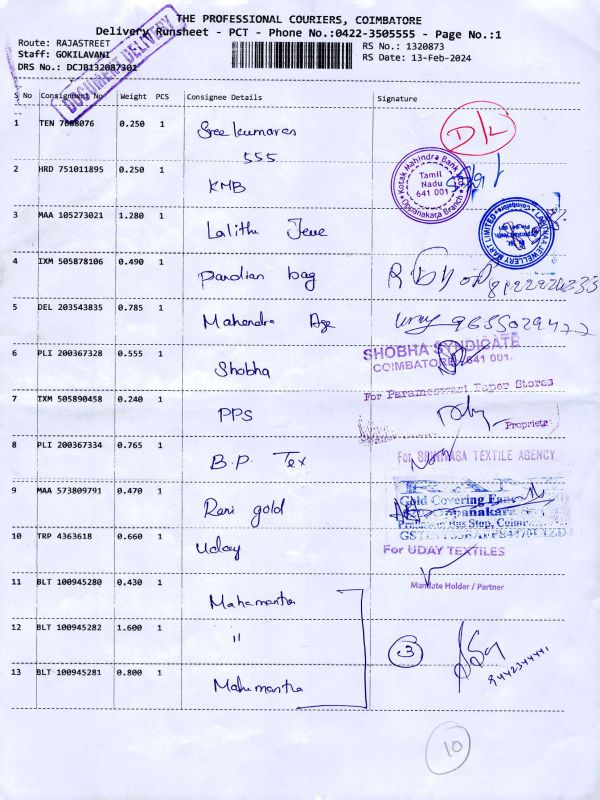 THE PROFESSIONAL COURIERS, COIMBATORE
Delivery Runsheet - PCT - Phone No.:0422-3505555 - Page No.:1
Route: RAJASTREET
RS No.: 1320873
Staff: GOKILAVANI
RS Date: 13-Feb-2024
DRS No.: DCJB132087301
DOCUMENT DELIVERY
S No Consignment No Weight PCS Consignee Details Signature
1 TEN 7688076 0.250 1 Sree kumaran
555
D/L
2 HRD 751011895 0.250 1 KMB
Kotak Mahindra Bank
Tamil
Nadu
641 001
Oppanakara Branch
3 MAA 105273021 1.280 1 Lalitha Jewe
LALITHAA JEWELLERY MART LIMITED
Coimbatore
4 IXM 505878106 0.490 1 Pandian bag
5 DEL 203543835 0.785 1 Mahendra Age
9655029422
6 PLI 200367328 0.555 1 Shobha
SHOBHA SYNDICATE
COIMBATORE 641 001.
7 IXM 505890458 0.240 1 PPS
For Parameswari Paper Stores
Proprietr
8 PLI 200367334 0.765 1 B.P. Tex
For SRINIVASA TEXTILE AGENCY
9 MAA 573809791 0.470 1 Rani gold
Gold Covering
Oppanakara
Bus Stop,
10 TRP 4363618 0.660 1 Uday
For UDAY TEXTILES
11 BLT 100945280 0.430 1 Mahamantra
Mandate Holder / Partner
12 BLT 100945282 1.600 1 "
3
13 BLT 100945281 0.800 1 Mahamantra
9442344441
10